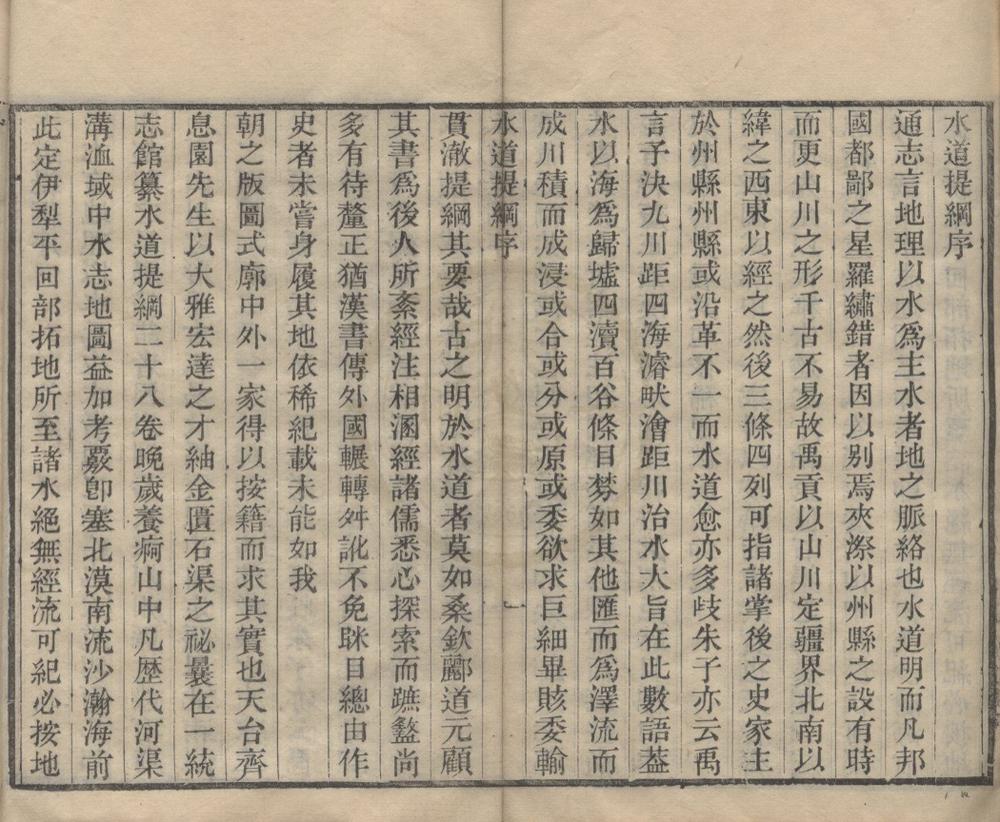 水道提綱序
通志言地理以水爲主水者地之脈絡也水道明而凡邦
國都鄙之星羅繡錯者因以別焉夾漈以州縣之設有時
而更山川之形千古不易故禹貢以山川定疆界北南以
緯之西東以經之然後三條四列可指諸掌後之史家主
於州縣州縣或沿革不一而水道愈亦多歧朱子亦云禹
言予決九川距四海濬畎澮距川治水大旨在此數語葢
水以海爲歸墟四瀆百谷條目棼如其他匯而爲澤流而
成川積而成浸或合或分或原或委欲求巨細畢賅委輸
水道提綱序
一
貫澈提綱其要哉古之明於水道者莫如桑欽酈道元顧
其書爲後人所紊經注相溷經諸儒悉心探索而蹠盭尚
多有待釐正猶漢書傳外國輾轉舛訛不免眯目總由作
史者未嘗身履其地依稀紀載未能如我
朝之版圖式廓中外一家得以按籍而求其實也天台齊
息園先生以大雅宏達之才紬金匱石渠之祕曩在一統
志館纂水道提綱二十八卷晚歲養疴山中凡歷代河渠
溝洫域中水志地圖益加考覈卽塞北漠南流沙瀚海前
此定伊犁平回部拓地所至諸水絕無經流可紀必按地